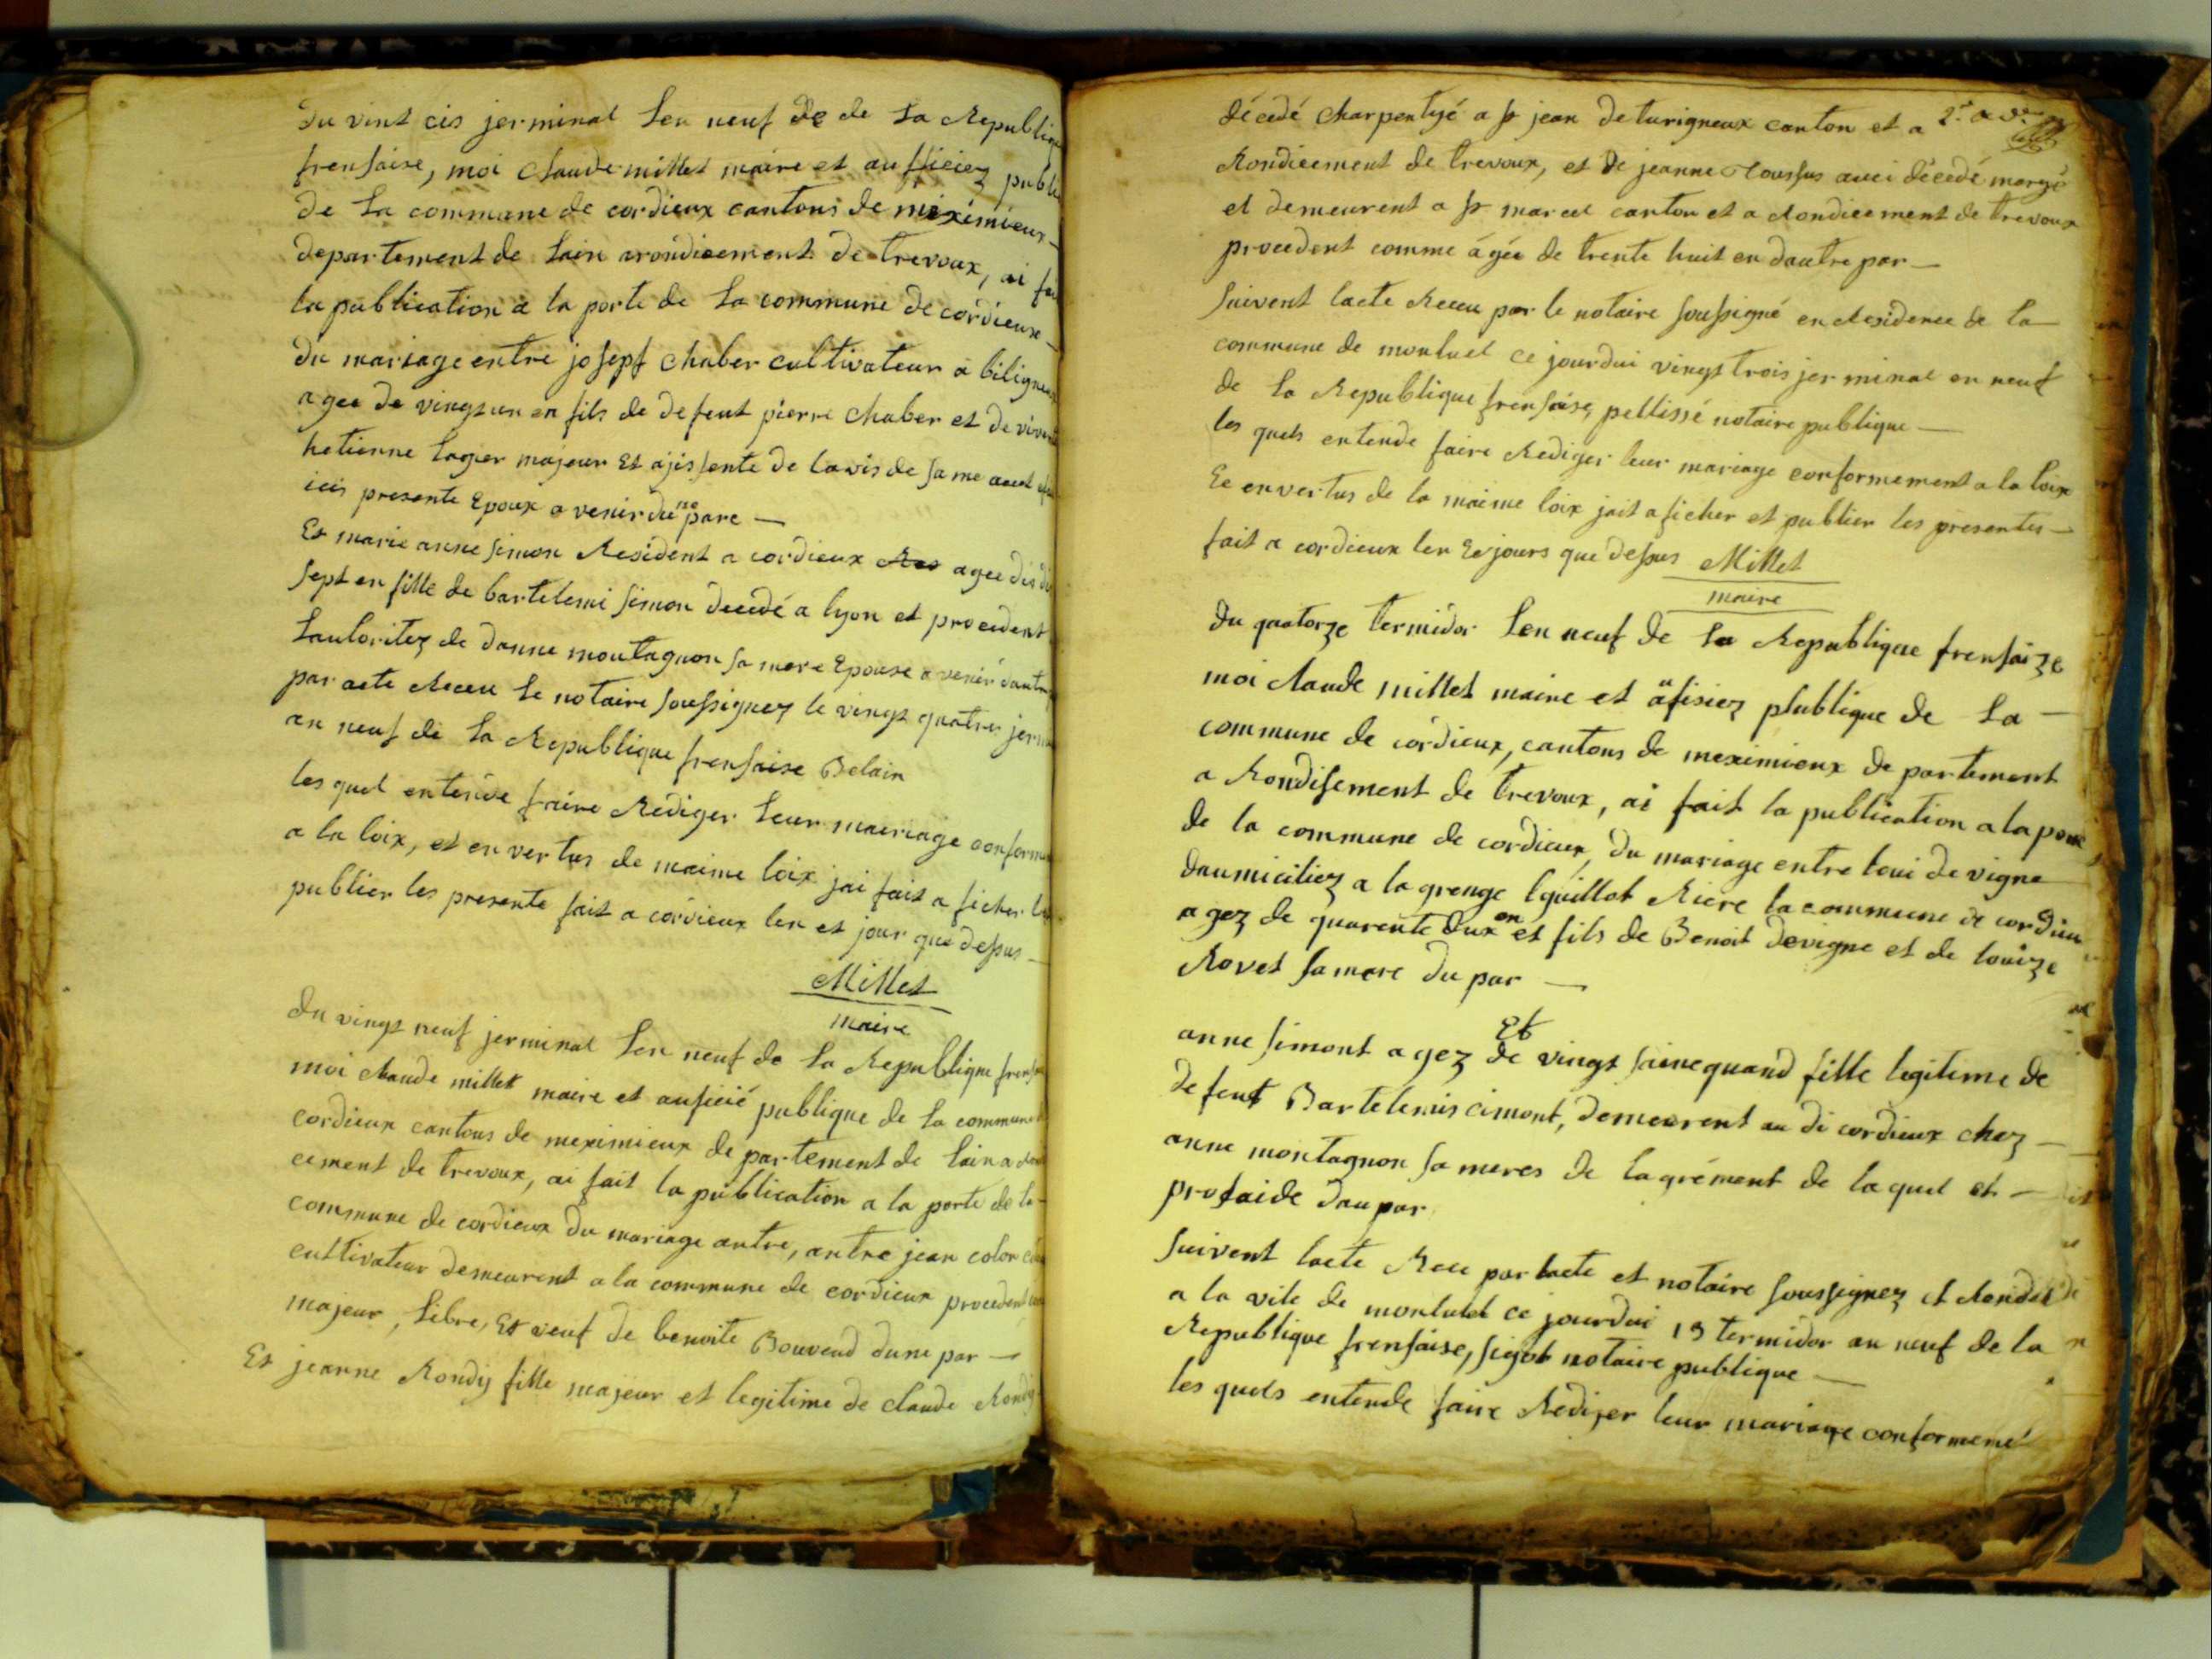 Du vint cis jerminal Len neuf de de La Republique
frensaise, moi Claude millet maire et aufficiez publi
de La commune de cordieux cantons de meximieux
departement de Lain arondicement de trevoux, ai fa
la publication a la porte de La commune de cordieux
du mariage entre josepf Chaber cultivateur a biligneux
agee de vingt un en fils de defeut pierre Chaber et de vivent
hetienne Lager majeur Et ajissente de lavis de sa me
icis presente Epoux a venir du ne pare
Et marie anne simon Resident a cordieux Res agee dis di
sept en fille de bartelemi simon decedé a lyon et procedent
Lautoritez de danne montagnon sa mere Epouse a venir dautre
par acte Receu Le notaire soussignez le vingt quatres jerm
an neuf de La Republique frensaise Belain
les quel entende faire Rediger Leur maeriage conforme
a la loix, et en vertus de maime loix jai fait a ficher
publier les presente fait a cordieux len et jour que dessus
Millet
maire
Du vingt neuf jerminal Len neuf de La Republique frensa
moi Claude millet maire et auficié publique de La commune
cordieux cantons de meximieux de partement de Lain a
cement de trevoux, ai fait la publication a la porte de la
commune de cordieux du mariage antre, antre jean colon
cultivateur demeurent a la commune de cordieux procedent
majeur, Libre, Et veuf de benoite Bouvend dune par
Et jeanne Rondy fille majeur et legitime de claude Rondy
décedé Charpentyé a st jean de turigneux canton et a
Rondicement de trevoux, et de jeanne Toussus auci décedé
et demeurent a st marcel canton et a Rondicement de trevoux
procedent comme ágée de trente huit en dautre par
suivent lacte Receu par le notaire soussigné en Residence de la
commune de montuel ce jourdui vingt trois jerminal en neuf
de La Republique frensaise, pellissé notaire publique
les quels entende faire Rediger leur mariage conformement a la loix
Ee en vertus de la maime loix jait a ficher et publier les presentes
fait a cordieux len Ee jours que dessus Millet
maire
Du quatorze termidor Len neuf de La Republique frensaize
moi claude millet maire et aufisiez plublique de La
commune de cordieux, cantons de meximieux de partement
a Rondisement de trevoux, ai fait la publication a la porte
de la commune de cordieux, du mariage entre loui de vigne
daumiciliez a la grenge lguillot Riere la commune de cordieu
agez de quarente deux en et fils de Benoit devigne et de louize
Rovet sa mere du par
Et
anne simont agez de vingt saincquand fille legitime de
defeut Bartelemis cimont, demeurent au di cordieux chez
anne montagnon sa meres de lagrément de laquel et
profaide dau par
suivent lacte Receu par lacte et notaire soussignez et
a la vile de montuel ce jourdui 13 termidor an neuf de la
Republique frensaise, sigot notaire publique
les quels entende faire Redijer leur mariage conformemet